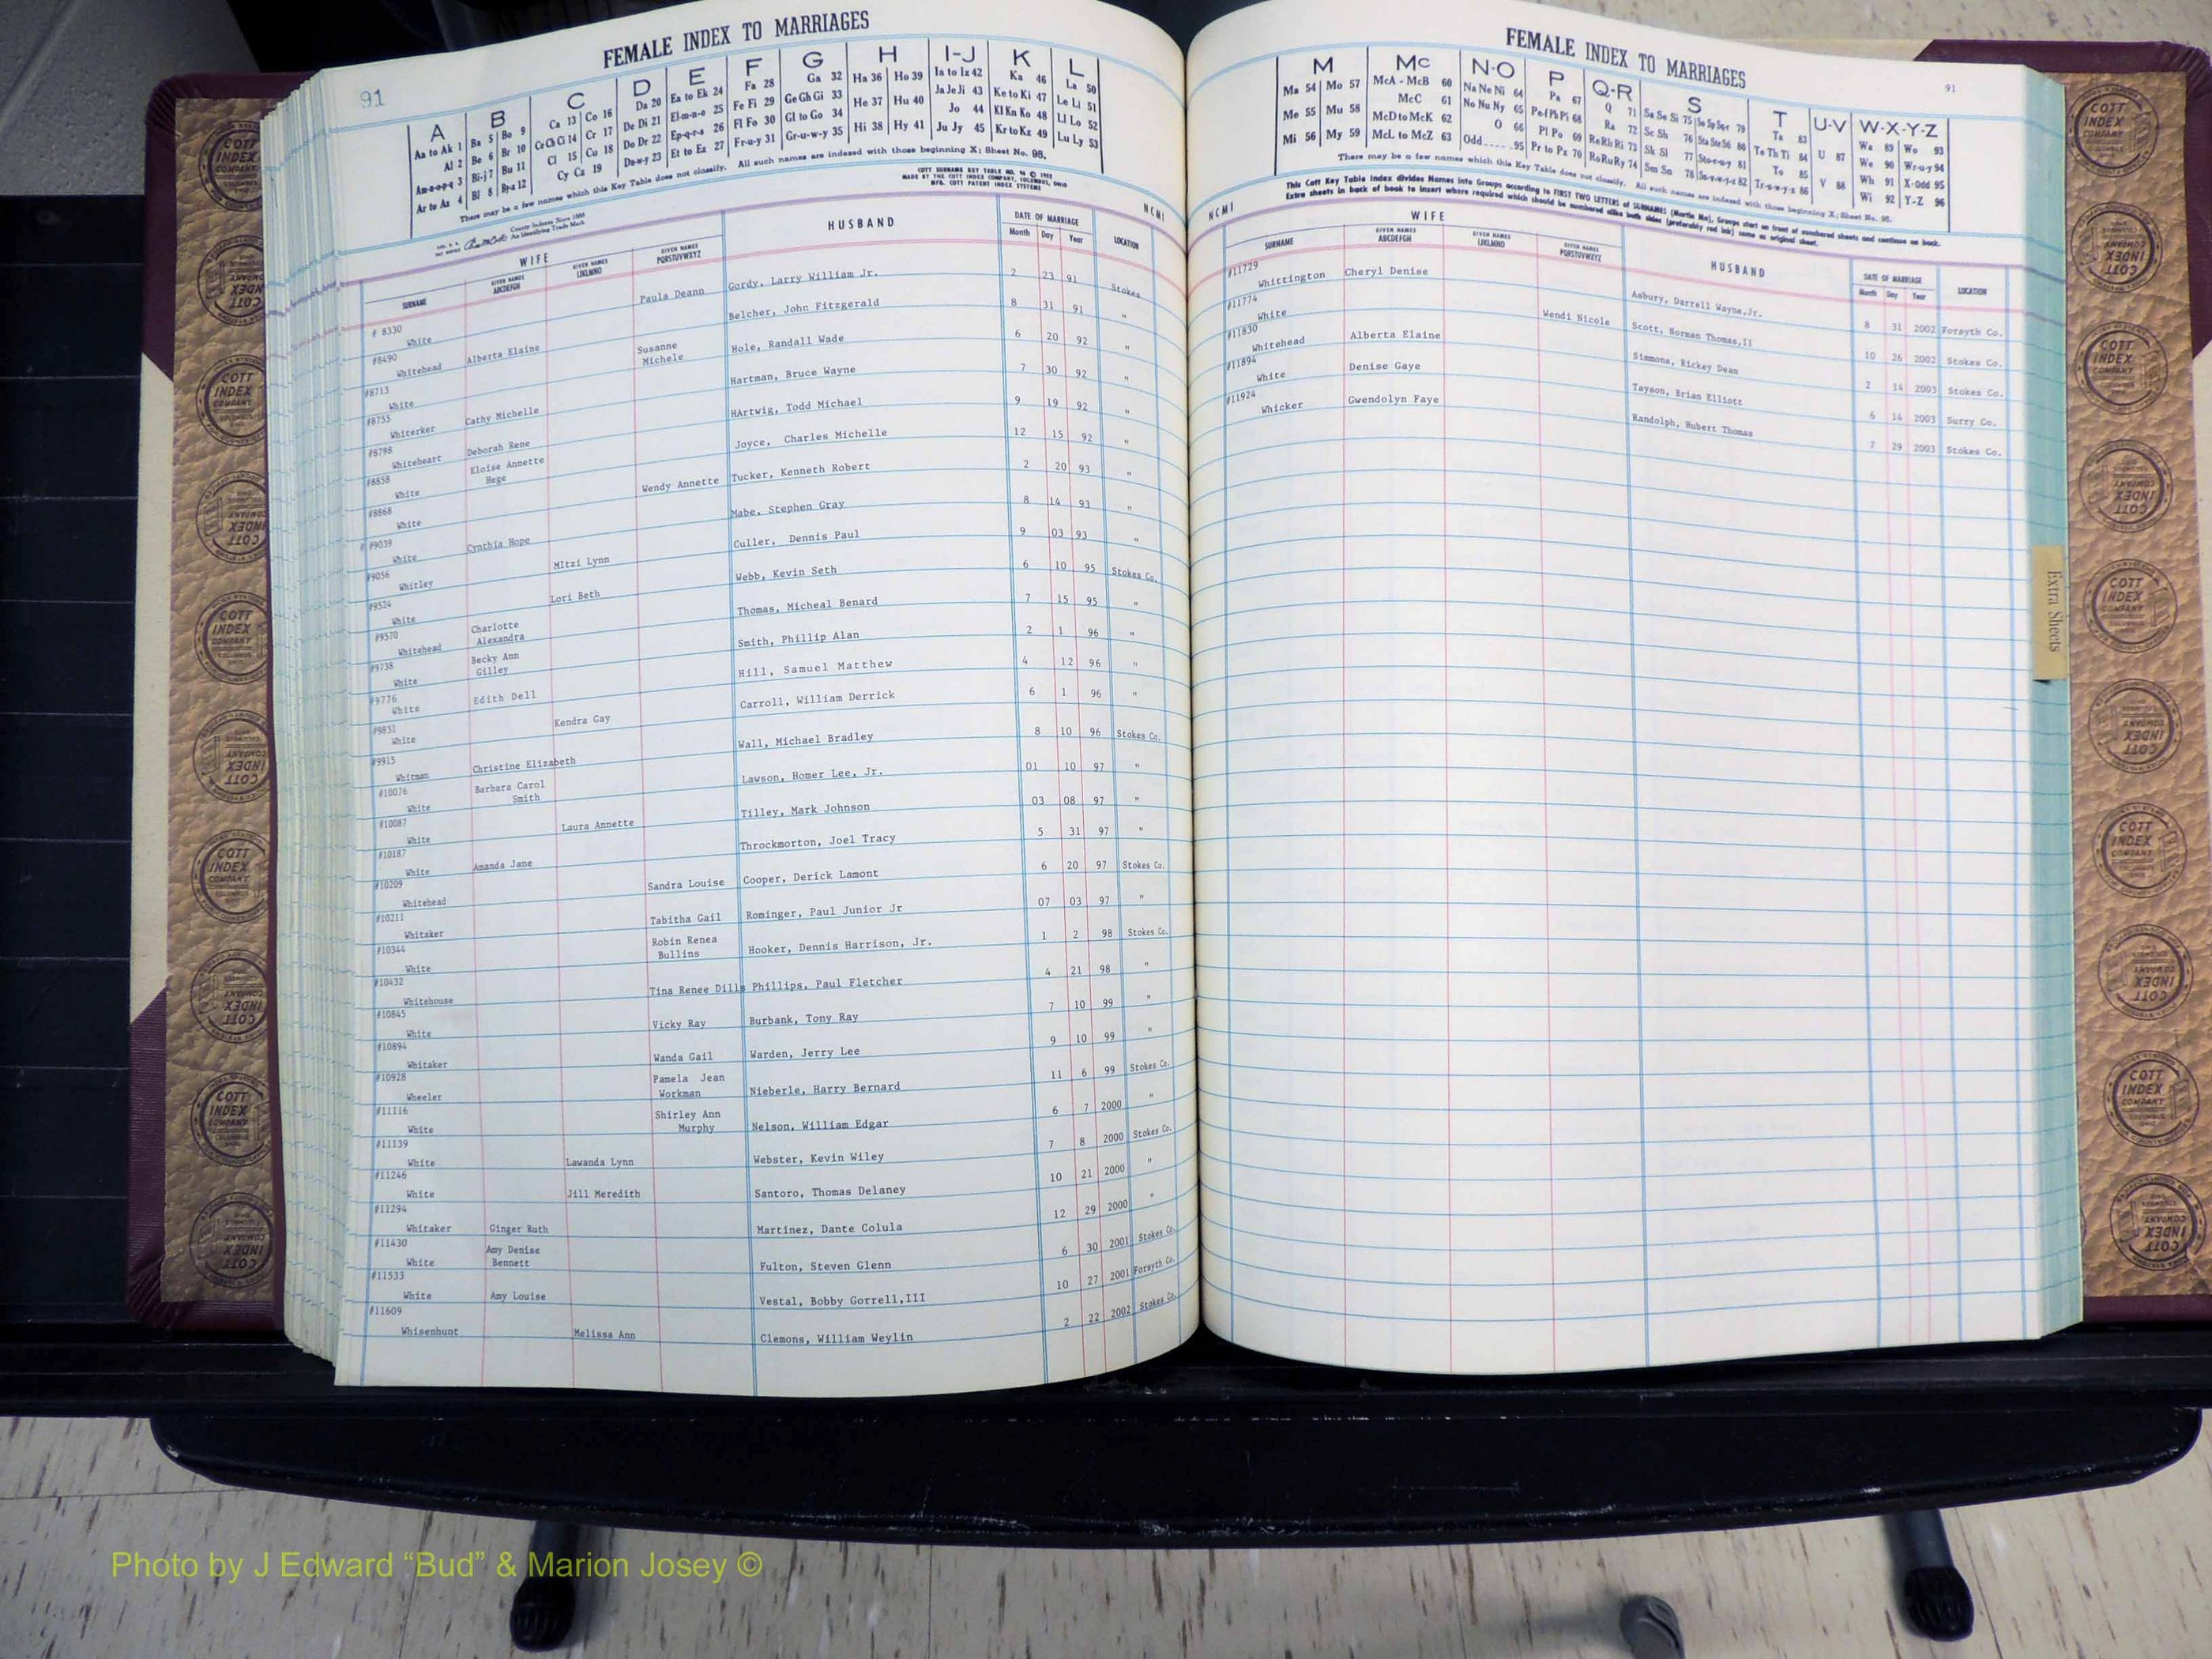 FEMALE INDEX TO MARRIAGES
91
A B C D E F G H I-J K L
Aa to Ak 1 Ba 5 Bo 9 Ca 13 Co 16 Da 20 Ea to Ek 24 Fa 28 Ga 32 Ha 36 Ho 39 Ia to Iz 42 Ka 46 La 50
Al 2 Be 6 Br 10 Ce Ch Ci 14 Cr 17 De Di 21 El-m-n-o 25 Fe Fi 29 Ge Gh Gi 33 He 37 Hu 40 Ja Je Ji 43 Ke to Ki 47 Le Li 51
Am-n-o-p-q 3 Bi-j 7 Bu 11 Cl 15 Cu 18 Do Dr 22 Ep-q-r-s 26 Fl Fo 30 Gl to Go 34 Hi 38 Hy 41 Jo 44 Kl Kn Ko 48 Ll Lo 52
Ar to Az 4 Bl 8 By-z 12 Cy Cz 19 Du-w-y 23 Et to Ez 27 Fr-u-y 31 Gr-u-w-y 35 Ju Jy 45 Kr to Kz 49 Lu Ly 53
There may be a few names which this Key Table does not classify. All such names are indexed with those beginning X; Sheet No. 98.
COTT SURNAME KEY TABLE
MADE BY THE COTT INDEX COMPANY, COLUMBUS, OHIO
MFG. COTT PATENT INDEX SYSTEMS
County Indexes Since 1888
An Identifying Trade Mark
NCMI
WIFE HUSBAND DATE OF MARRIAGE LOCATION
SURNAME GIVEN NAMES ABCDEFGH GIVEN NAMES IJKLMNO GIVEN NAMES PQRSTUVWXYZ Month Day Year
# 8330 White Paula Deann Gordy, Larry William Jr. 2 23 91 Stokes
#8490 Whitehead Alberta Elaine Belcher, John Fitzgerald 8 31 91 "
#8713 White Susanne Michele Hole, Randall Wade 6 20 92 "
#8755 Whiterker Cathy Michelle Hartman, Bruce Wayne 7 30 92 "
#8798 Whiteheart Deborah Rene HArtwig, Todd Michael 9 19 92 "
#8858 White Eloise Annette Hege Joyce, Charles Michelle 12 15 92 "
#8868 White Wendy Annette Tucker, Kenneth Robert 2 20 93 "
#9039 White Cynthia Hope Mabe, Stephen Gray 8 14 93 "
#9056 Whitley MItzi Lynn Culler, Dennis Paul 9 03 93 "
#9524 White Lori Beth Webb, Kevin Seth 6 10 95 Stokes Co.
#9570 Whitehead Charlotte Alexandra Thomas, Micheal Benard 7 15 95 "
#9738 White Becky Ann Gilley Smith, Phillip Alan 2 1 96 "
#9776 White Edith Dell Hill, Samuel Matthew 4 12 96 "
#9831 White Kendra Gay Carroll, William Derrick 6 1 96 "
#9915 Whitman Christine Elizabeth Wall, Michael Bradley 8 10 96 Stokes Co.
#10076 White Barbara Carol Smith Lawson, Homer Lee, Jr. 01 10 97 "
#10087 White Laura Annette Tilley, Mark Johnson 03 08 97 "
#10187 White Amanda Jane Throckmorton, Joel Tracy 5 31 97 "
#10209 Whitehead Sandra Louise Cooper, Derick Lamont 6 20 97 Stokes Co.
#10211 Whitaker Tabitha Gail Rominger, Paul Junior Jr 07 03 97 "
#10344 White Robin Renea Bullins Hooker, Dennis Harrison, Jr. 1 2 98 Stokes Co.
#10432 Whitehouse Tina Renee Dills Phillips, Paul Fletcher 4 21 98 "
#10845 White Vicky Ray Burbank, Tony Ray 7 10 99 "
#10894 Whitaker Wanda Gail Warden, Jerry Lee 9 10 99 "
#10928 Wheeler Pamela Jean Workman Nieberle, Harry Bernard 11 6 99 Stokes Co.
#11116 White Shirley Ann Murphy Nelson, William Edgar 6 7 2000 "
#11139 White Lawanda Lynn Webster, Kevin Wiley 7 8 2000 Stokes Co.
#11246 White Jill Meredith Santoro, Thomas Delaney 10 21 2000 "
#11294 Whitaker Ginger Ruth Martinez, Dante Colula 12 29 2000 "
#11430 White Amy Denise Bennett Fulton, Steven Glenn 6 30 2001 Stokes Co.
#11533 White Amy Louise Vestal, Bobby Gorrell,III 10 27 2001 Forsyth Co.
#11609 Whisenhunt Melissa Ann Clemons, William Weylin 2 22 2002 Stokes Co.
FEMALE INDEX TO MARRIAGES
91
M Mc N-O P Q-R S T U-V W-X-Y-Z
Ma 54 Mo 57 McA - McB 60 Na Ne Ni 64 Pa 67 Q 71 Sa Se Si 75 So Sp Sq-r 79 Ta 83 Wa 89 Wo 93
Me 55 Mu 58 McC 61 No Nu Ny 65 Pe-f Ph Pi 68 Ra 72 Sc Sh 76 Sta Ste 80 Te Th Ti 84 U 87 We 90 Wr-u-y 94
Mi 56 My 59 McD to McK 62 O 66 Pl Po 69 Re Rh Ri 73 Sk Sl 77 Sto-r-u-y 81 To 85 Wh 91 X-Odd 95
McL to McZ 63 Odd 95 Pr to Pz 70 Ro Ru Ry 74 Sm Sn 78 82 Tr-u-w-y-z 86 V 88 Wi 92 Y-Z 96
There may be a few names which this Key Table does not classify. All such names are indexed with those beginning X; Sheet No. 98.
This Cott Key Table Index divides Names into Groups according to FIRST TWO LETTERS of SURNAMES (Martin Ma), Groups start on front of numbered sheets and continue on back.
Extra sheets in back of book to insert where required which should be numbered alike both sides (preferably red ink) same as original sheet.
NCMI
WIFE HUSBAND DATE OF MARRIAGE LOCATION
SURNAME GIVEN NAMES ABCDEFGH GIVEN NAMES IJKLMNO GIVEN NAMES PQRSTUVWXYZ Month Day Year
#11729 Whittington Cheryl Denise Asbury, Darrell Wayne,Jr. 8 31 2002 Forsyth Co.
#11774 White Wendi Nicole Scott, Norman Thomas,II 10 26 2002 Stokes Co.
#11830 Whitehead Alberta Elaine Simmons, Rickey Dean 2 14 2003 Stokes Co.
#11894 White Denise Gaye Tayson, Brian Elliott 6 14 2003 Surry Co.
#11924 Whicker Gwendolyn Faye Randolph, Hubert Thomas 7 29 2003 Stokes Co.
Extra Sheets
COTT INDEX COMPANY
Photo by J Edward “Bud” & Marion Josey ©